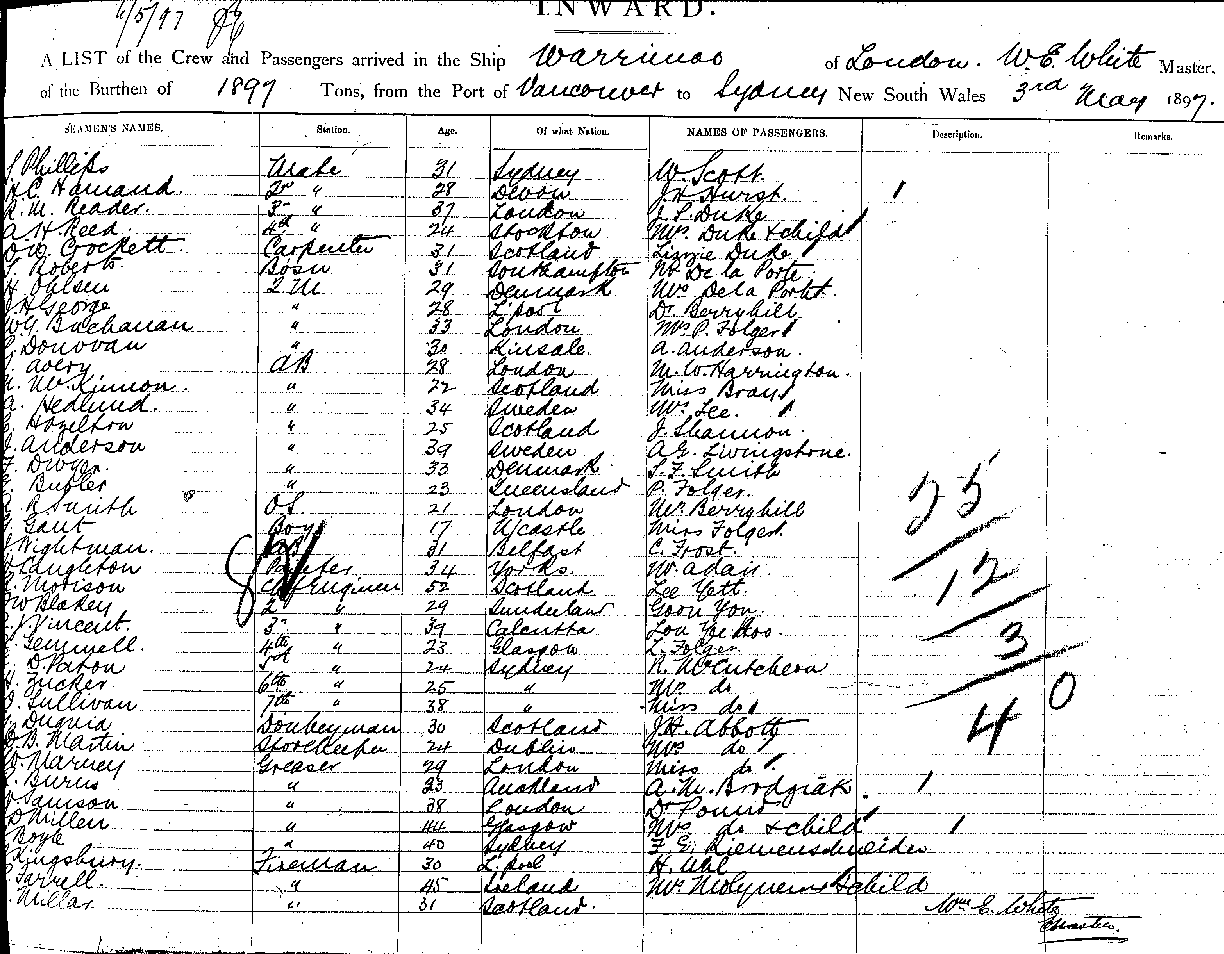 6/5/97
INWARD.
A LIST of the Crew and Passengers arrived in the Ship Warrimoo of London. W. E. White Master,
of the Burthen of 1897 Tons, from the Port of Vancouver to Sydney New South Wales 3rd May 1897.
SEAMEN'S NAMES. Station. Age. Of what Nation. NAMES OF PASSENGERS. Description. Remarks.
Phillips Mate 31 Sydney W. Scott.
H.C. Hamand. 2nd " 28 Devon J.H. Hurst. 1
R. M. Reader. 3rd " 37 London J. S. Duke
A H Reed. 4th " 24 Stockton Mrs Duke & child
Crockett Carpenter 31 Scotland Lizzie Duke
Roberts Bosn 31 Southampton Mr De la Porte
Ohlsen Q.M 29 Denmark Mrs De la Porte.
George " 28 L'pool Dr. Berryhill
W G Buchanan " 33 London Mrs P. Folger
Donovan " 30 Kinsale A. Anderson.
Avery AB 28 London M. W. Harrington.
McKinnon. " 22 Scotland Miss Bray
A. Hedlund. " 34 Sweden Mrs Lee.
Hazelton " 25 Scotland J. Shannon.
Anderson " 39 Sweden A. G. Livingstone.
Dwyer. " 33 Denmark. S. F. Smith
Butler " 23 Queensland P. Folger.
R Smith O.S. 21 London Mrs Berryhill
Gant Boy 17 N/castle Miss Folger.
Wightman. 31 Belfast C. Frost.
Laughton 34 Yorks. W. Adair.
Morison Ch Engineer 52 Scotland Lee Yett.
W Blakey 2 " 29 Sunderland Goon You.
Vincent. 3rd " 39 Calcutta Lou
Gemmell. 4th " 23 Glasgow L. Folger
D. Paton 5th " 24 Sydney R. McCutcheon
Zucker 6th " 25 " Mrs do
Sullivan 7th " 38 " Miss do
Duguid Donkeyman 30 Scotland J.H. Abbott
B. Martin Storekeeper 24 Dublin Mrs do
Varney Greaser 29 London Miss do
Burns " 23 Auckland A. M. Brodziak. 1
Samson " 38 London Dr Pound
Millen " 44 Glasgow Mrs do & child 1
Boyle " 40 Sydney F. E. Riemenschneider
Kingsbury. Fireman 30 L'pool H. Uhl
Farrell. " 45 Ireland Mrs & child
Millar " 31 Scotland.
25
12
3
4 0
Wm E. White
Master.